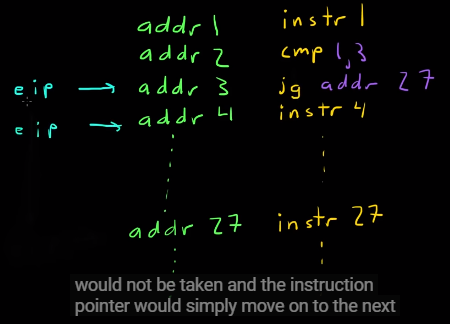 addr 1 instr 1
addr 2 cmp 1,3
eip addr 3 jg addr 27
eip addr 4 instr 4
addr 27 instr 27
would not be taken and the instruction
pointer would simply move on to the next